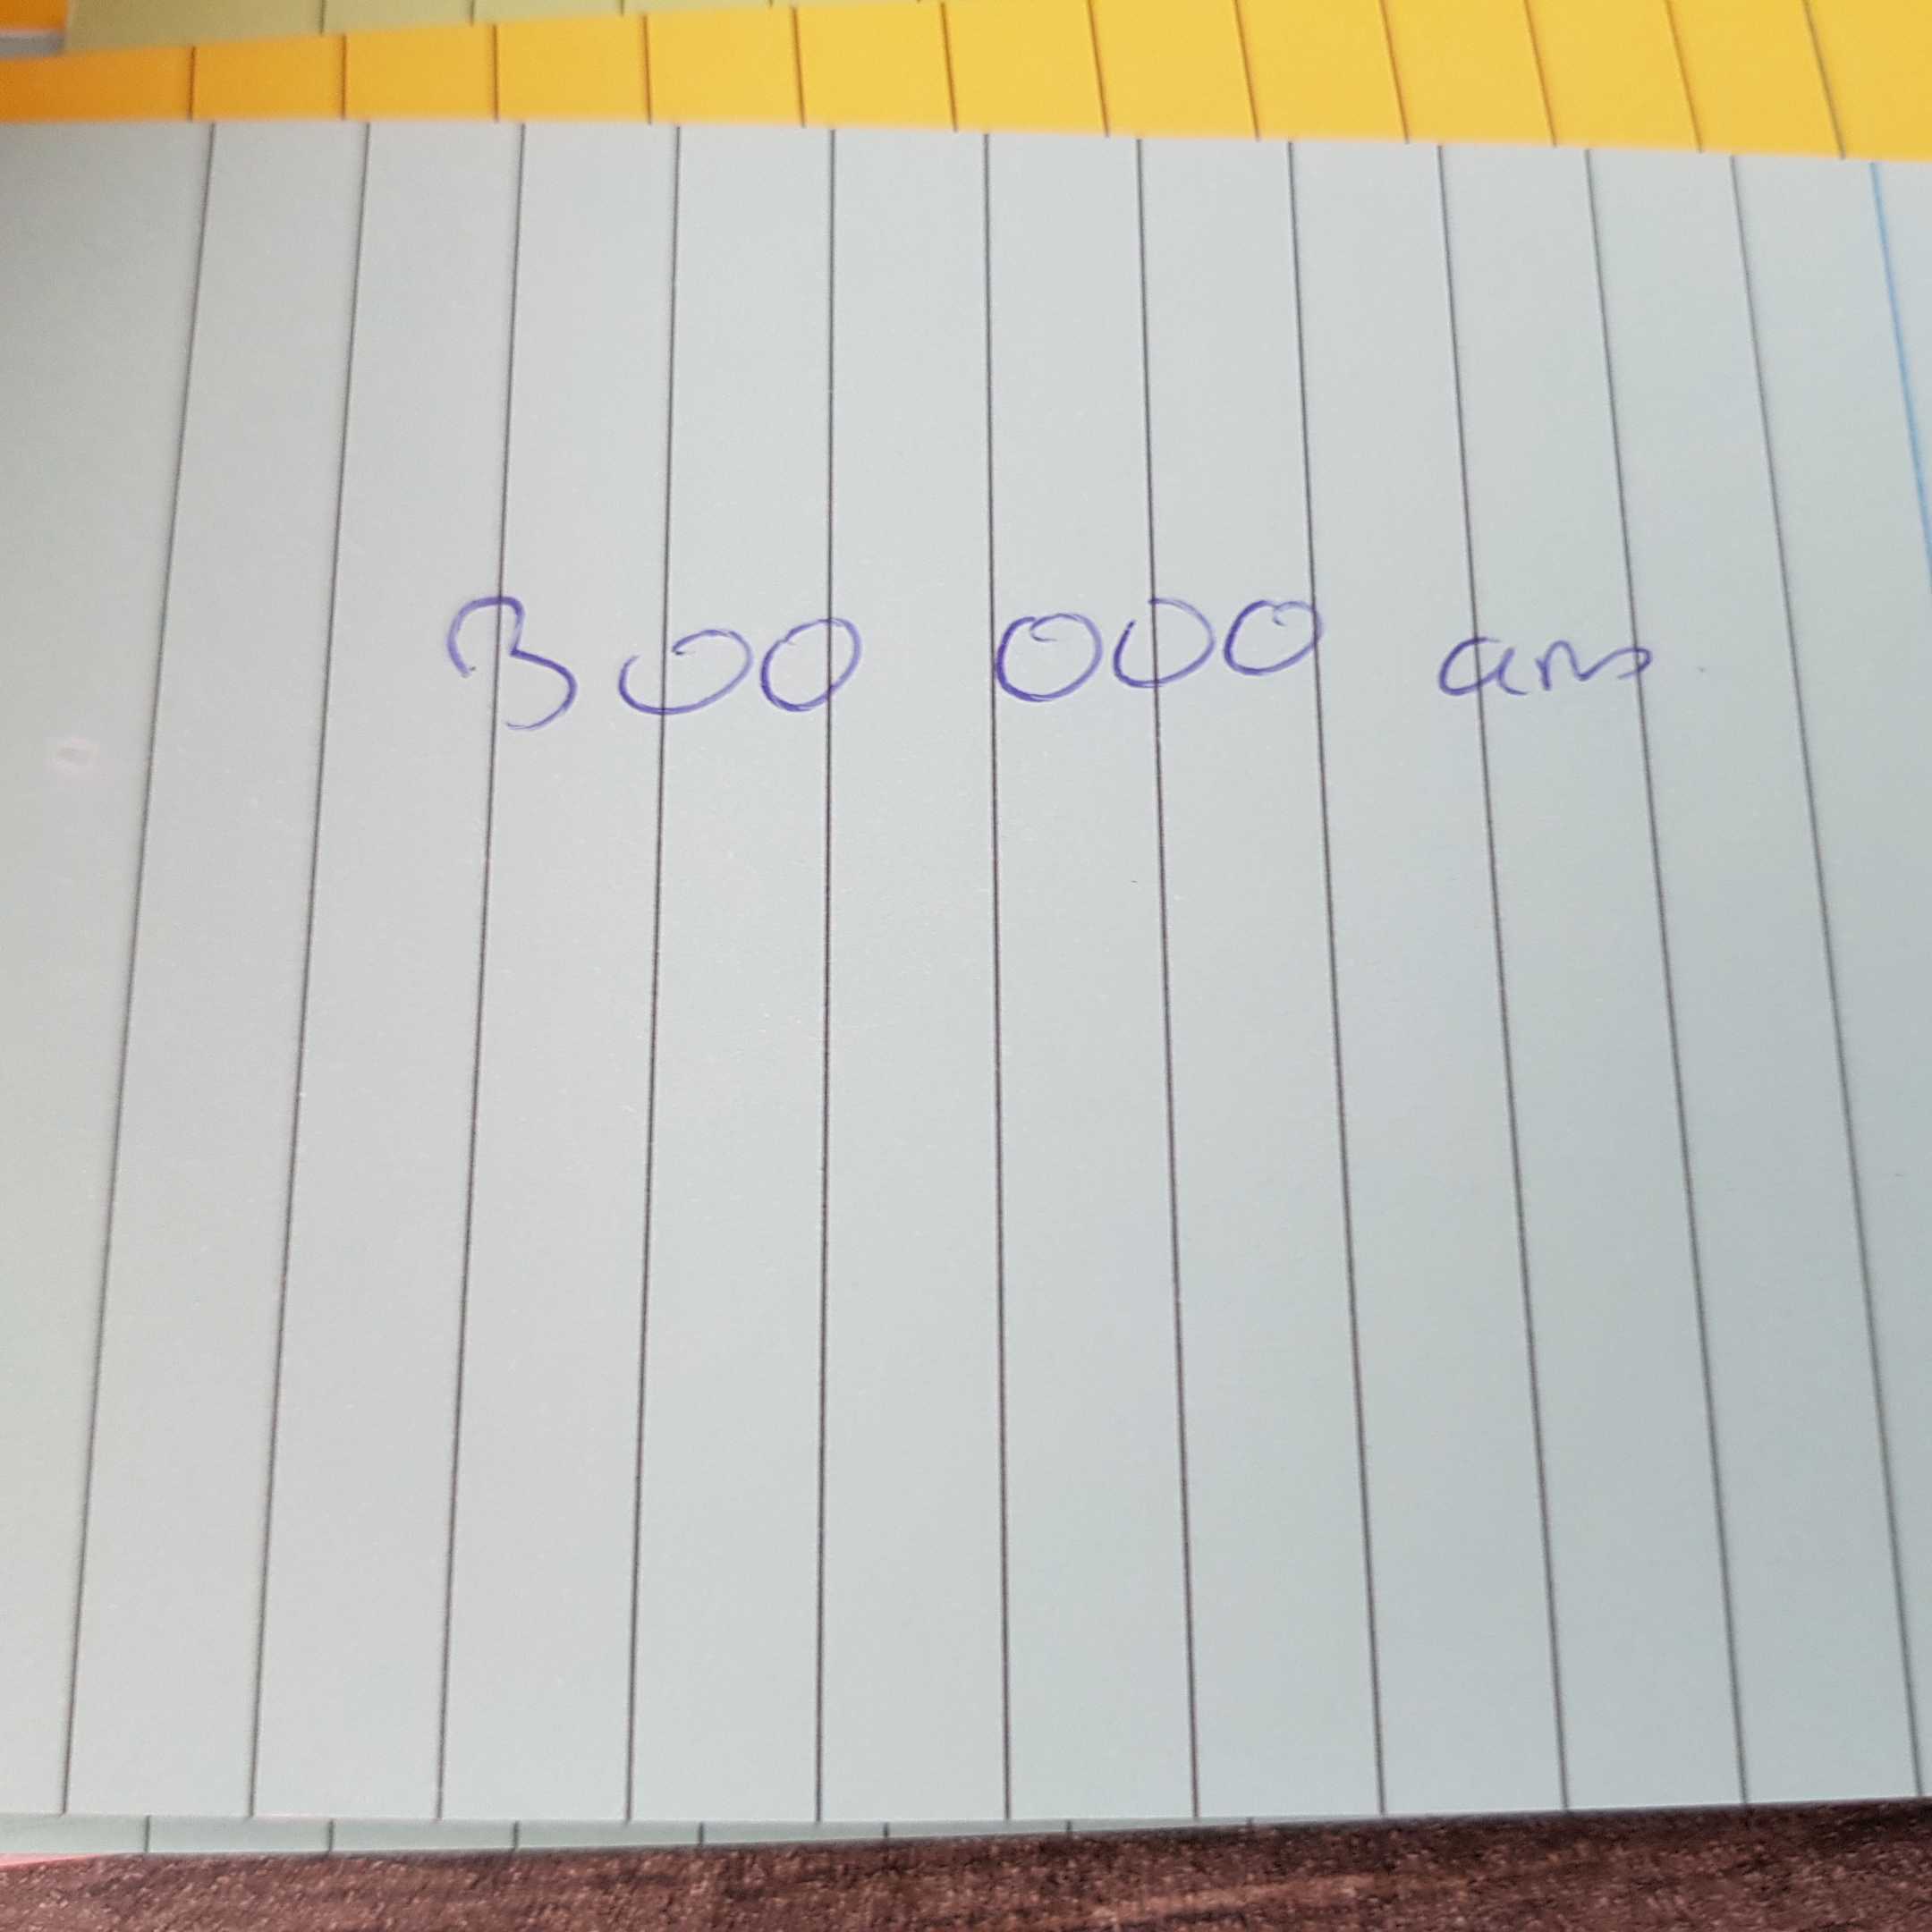 300 000 ans